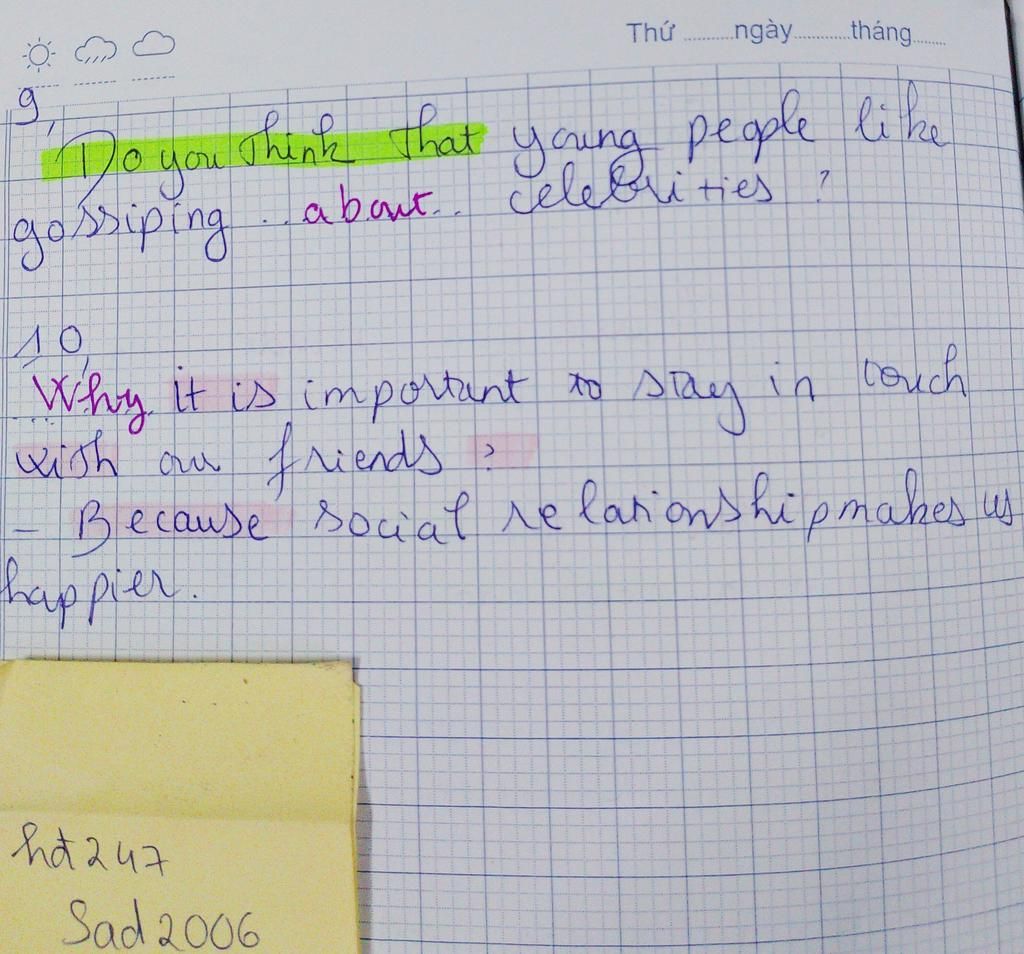 Thứ ..........ngày..........tháng......
9,
Do you think that young people like
gossiping ..about.. celebrities ?
10,
Why it is important to stay in touch
with our friends ?
- Because social relationship makes us
happier.
hđ247
Sad2006